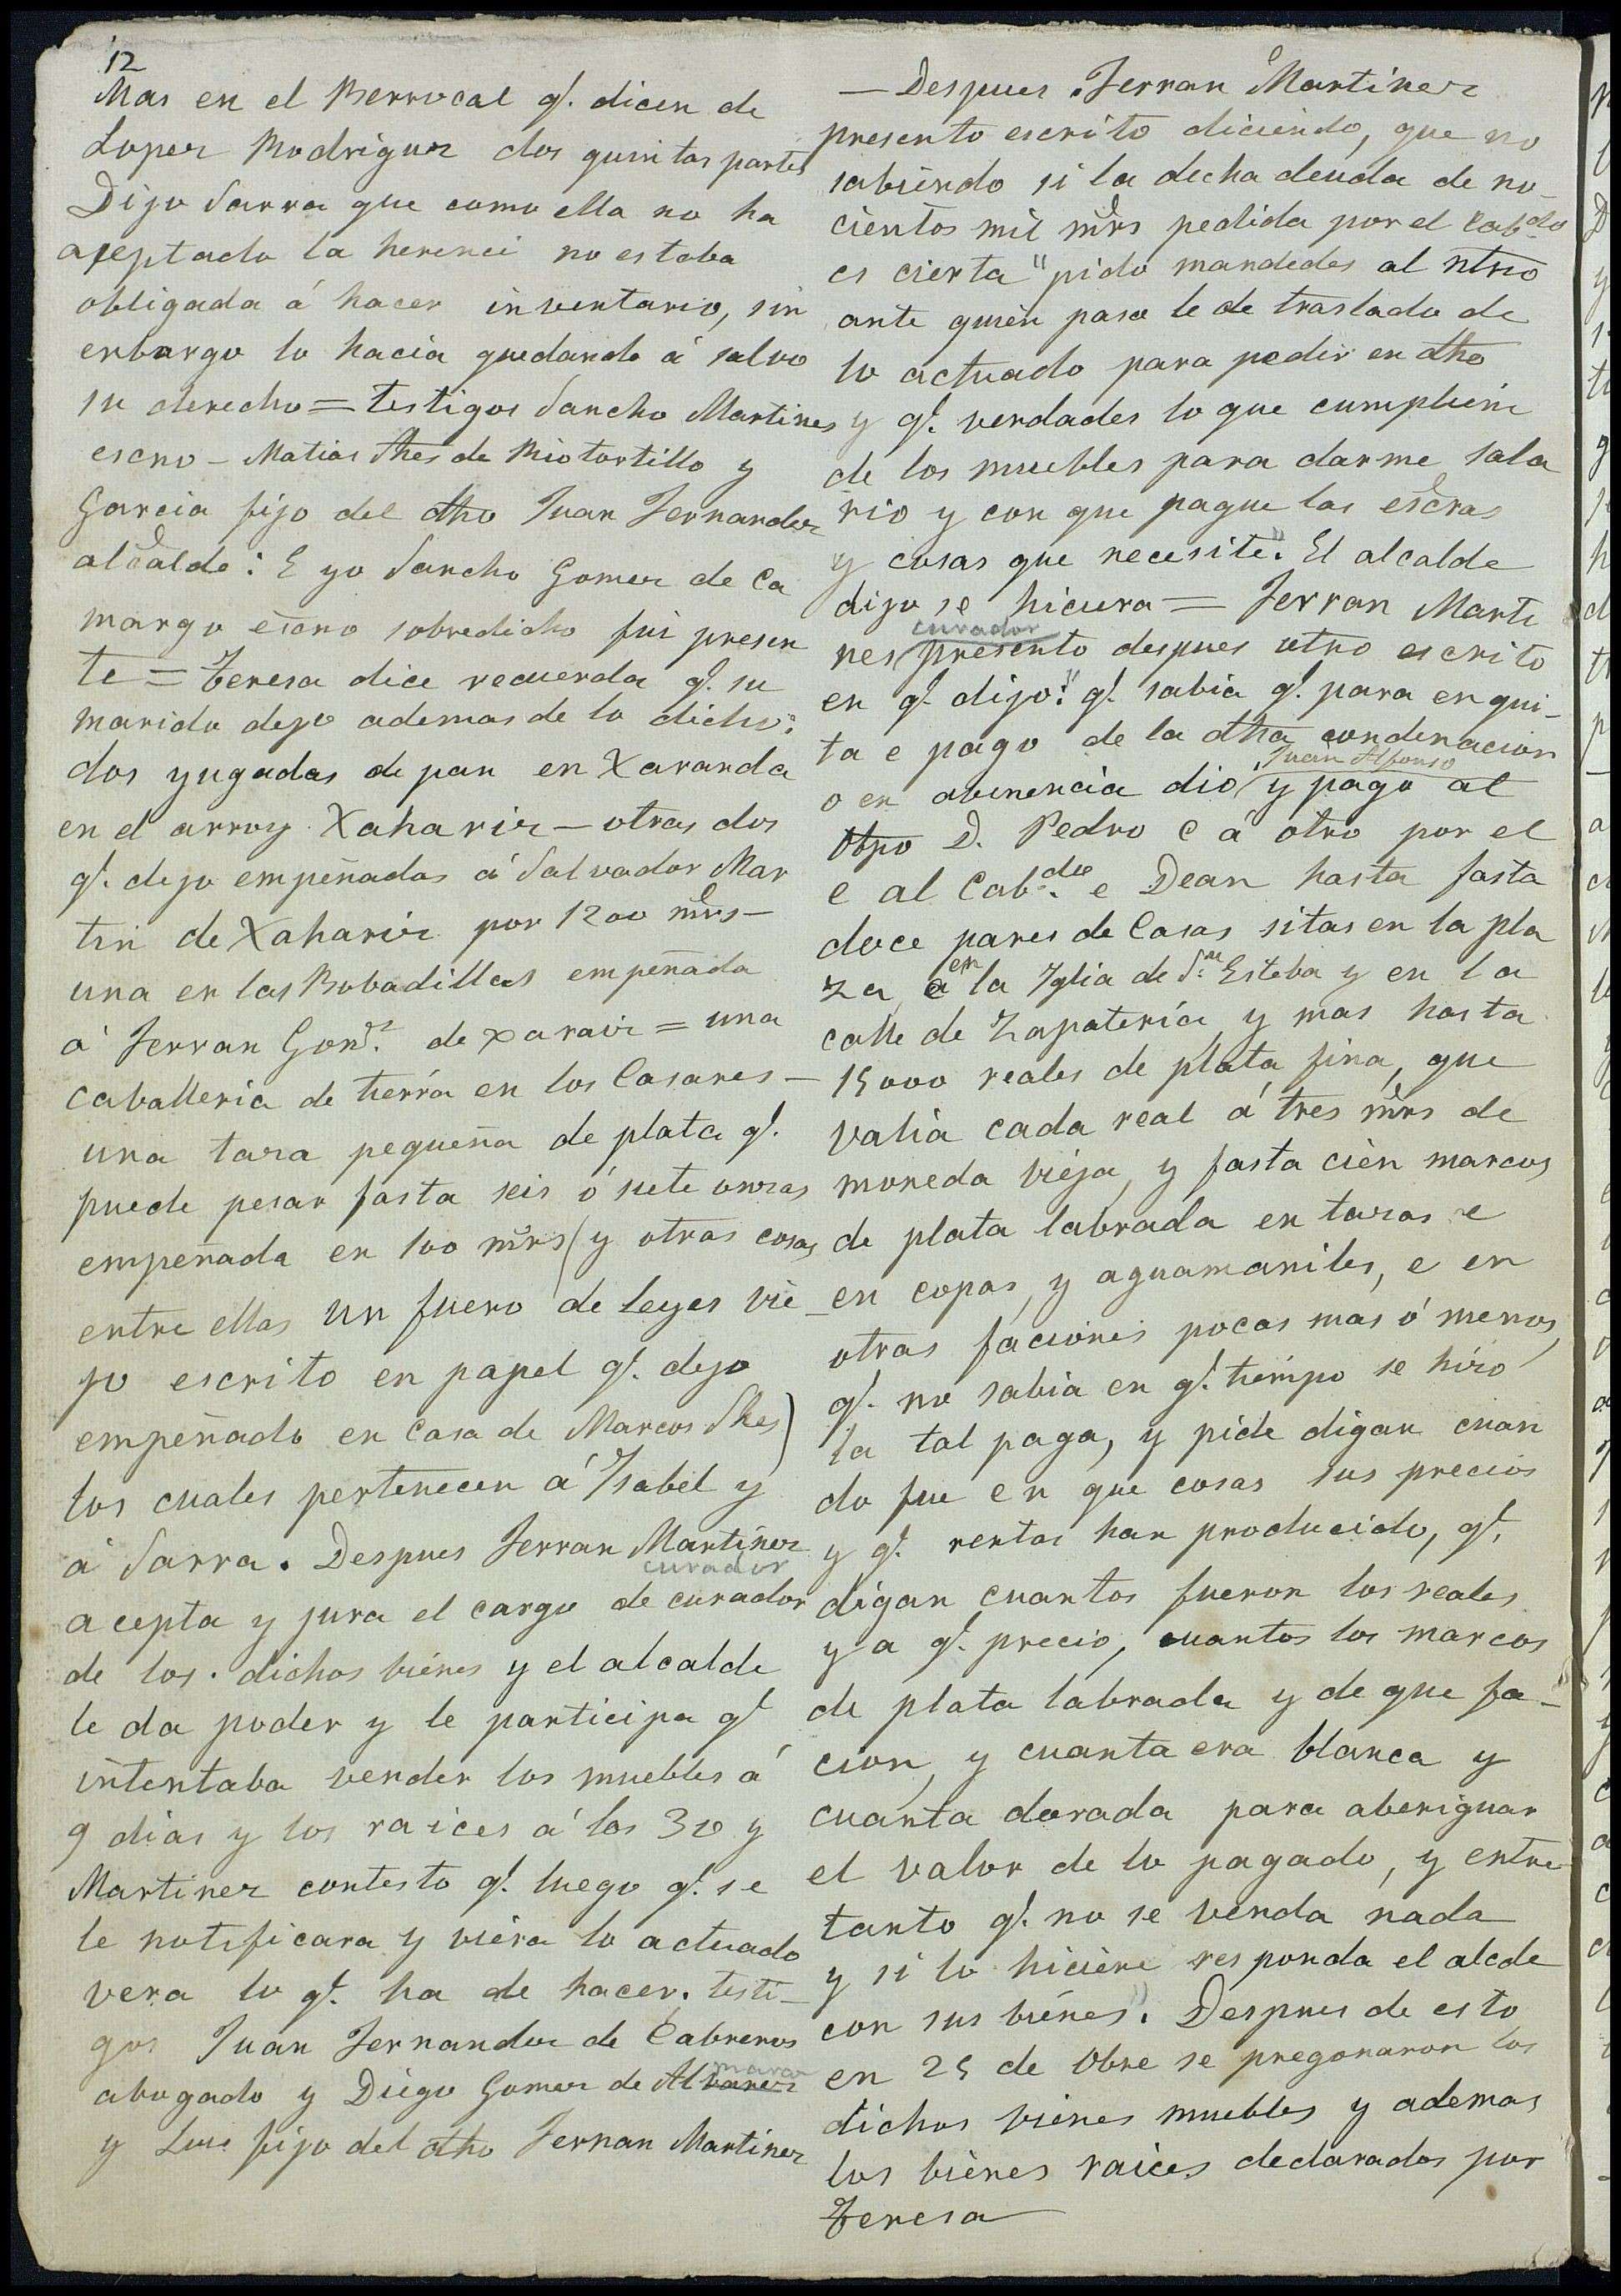 12
Mas en el Berrocal q.^ dicen de
Lopez Rodriguez dos quintas partes
Dijo Sarra que como ella no ha
aceptado la herenci no estaba
obligada á hacer inventario, sin
enbargo lo hacia quedando á salvo
su derecho = testigos Sancho Martines
escno - Matias Shes de Riotortillo y
Garcia fijo del dho Juan Fernandez
alcalde: E yo Sancho Gomez de Ca
margo escno sobredicho fui presen
te = Teresa dice recuerda q.^ su
marido dejo ademas de lo dicho:
dos yugadas de pan en Xaranda
en el arroy Xahariz - otras dos
q.^ dejo empeñadas á Salvador Mar
tin de Xahariz por 1200 mrs -
una en las Bobadillas empeñada
á Ferran Gonz. de xaraiz = una
caballeria de tierra en los Casares -
una taza pequeña de plata q.^
puede pesar fasta seis ó siete onzas
empeñada en 100 mrs (y otras cosas
entre ellas un fuero de leyes vie
jo escrito en papel q.^ dejo
empeñado en casa de Marcos Shes)
los cuales pertenecen á Ysabel y
á Sarra. Despues Ferran Martinez
curador
acepta y jura el cargo de curador
de los dichos biénes y el alcalde
le da poder y le participa q.^
intentaba vender los muebles á
9 dias y los raices á los 30 y
Martinez contesto q.^ luego q.^ se
le notificara y viéra lo actuado
vera lo q.^ ha de hacer; testi-
gos Juan Fernandez de Cabreros
marco
abogado y Diego Gomez de Albarez
y Luis fijo del dho Fernan Martinez
— Despues Ferran Martinez
presento escrito diciendo, que no
sabiendo si la decha deuda de no-
cientos mil mrs pedida por el Cabdo
es cierta "pido mandedes al ntrio
ante quien paso le de traslado de
lo actuado para pedir en dho
y q.^ verdades lo que cumpliém
de los muebles para darme sala
rio y con que pague las escras
y cosas que necesite". El alcalde
dijo se hiciera = Ferran Marti
curador
nes presento despues otro escrito
en q.^ dijo: "q.^ sabia q.^ para en qui-
ta e pago de la dha condenacion
Juan Alfonso
o en avenencia dio y pago al
Obpo D. Pedro e á otro por el
e al Cab.do e Dean hasta fasta
doce pares de Casas sitas en la pla
en
za, a la Yglia de S.n Esteba y en la
calle de Zapatería, y mas hasta
15000 reales de plata fina, que
valia cada real á tres mrs de
moneda vieja, y fasta cién marcos
de plata labrada en tazas e
en copas, y aguamaniles, e en
otras faciones pocas mas ó menos,
q.^ no sabia en q.^ tiémpo se hizo
la tal paga, y pide digan cuan
do fue en que cosas sus precios
y q.^ rentas han producido, q.^
digan cuantos fueron los reales
y a q.^ precio, cuantos los marcos
de plata labrada y de que fa-
cion, y cuanta era blanca y
cuanta dorada para aberiguar
el valor de lo pagado, y entre
tanto q.^ no se venda nada
y si lo hiciére responda el alcde
con sus biénes". Despues de esto
en 25 de Obre se pregonaron los
dichos biénes muebles y ademas
los biénes raices declarados por
Teresa